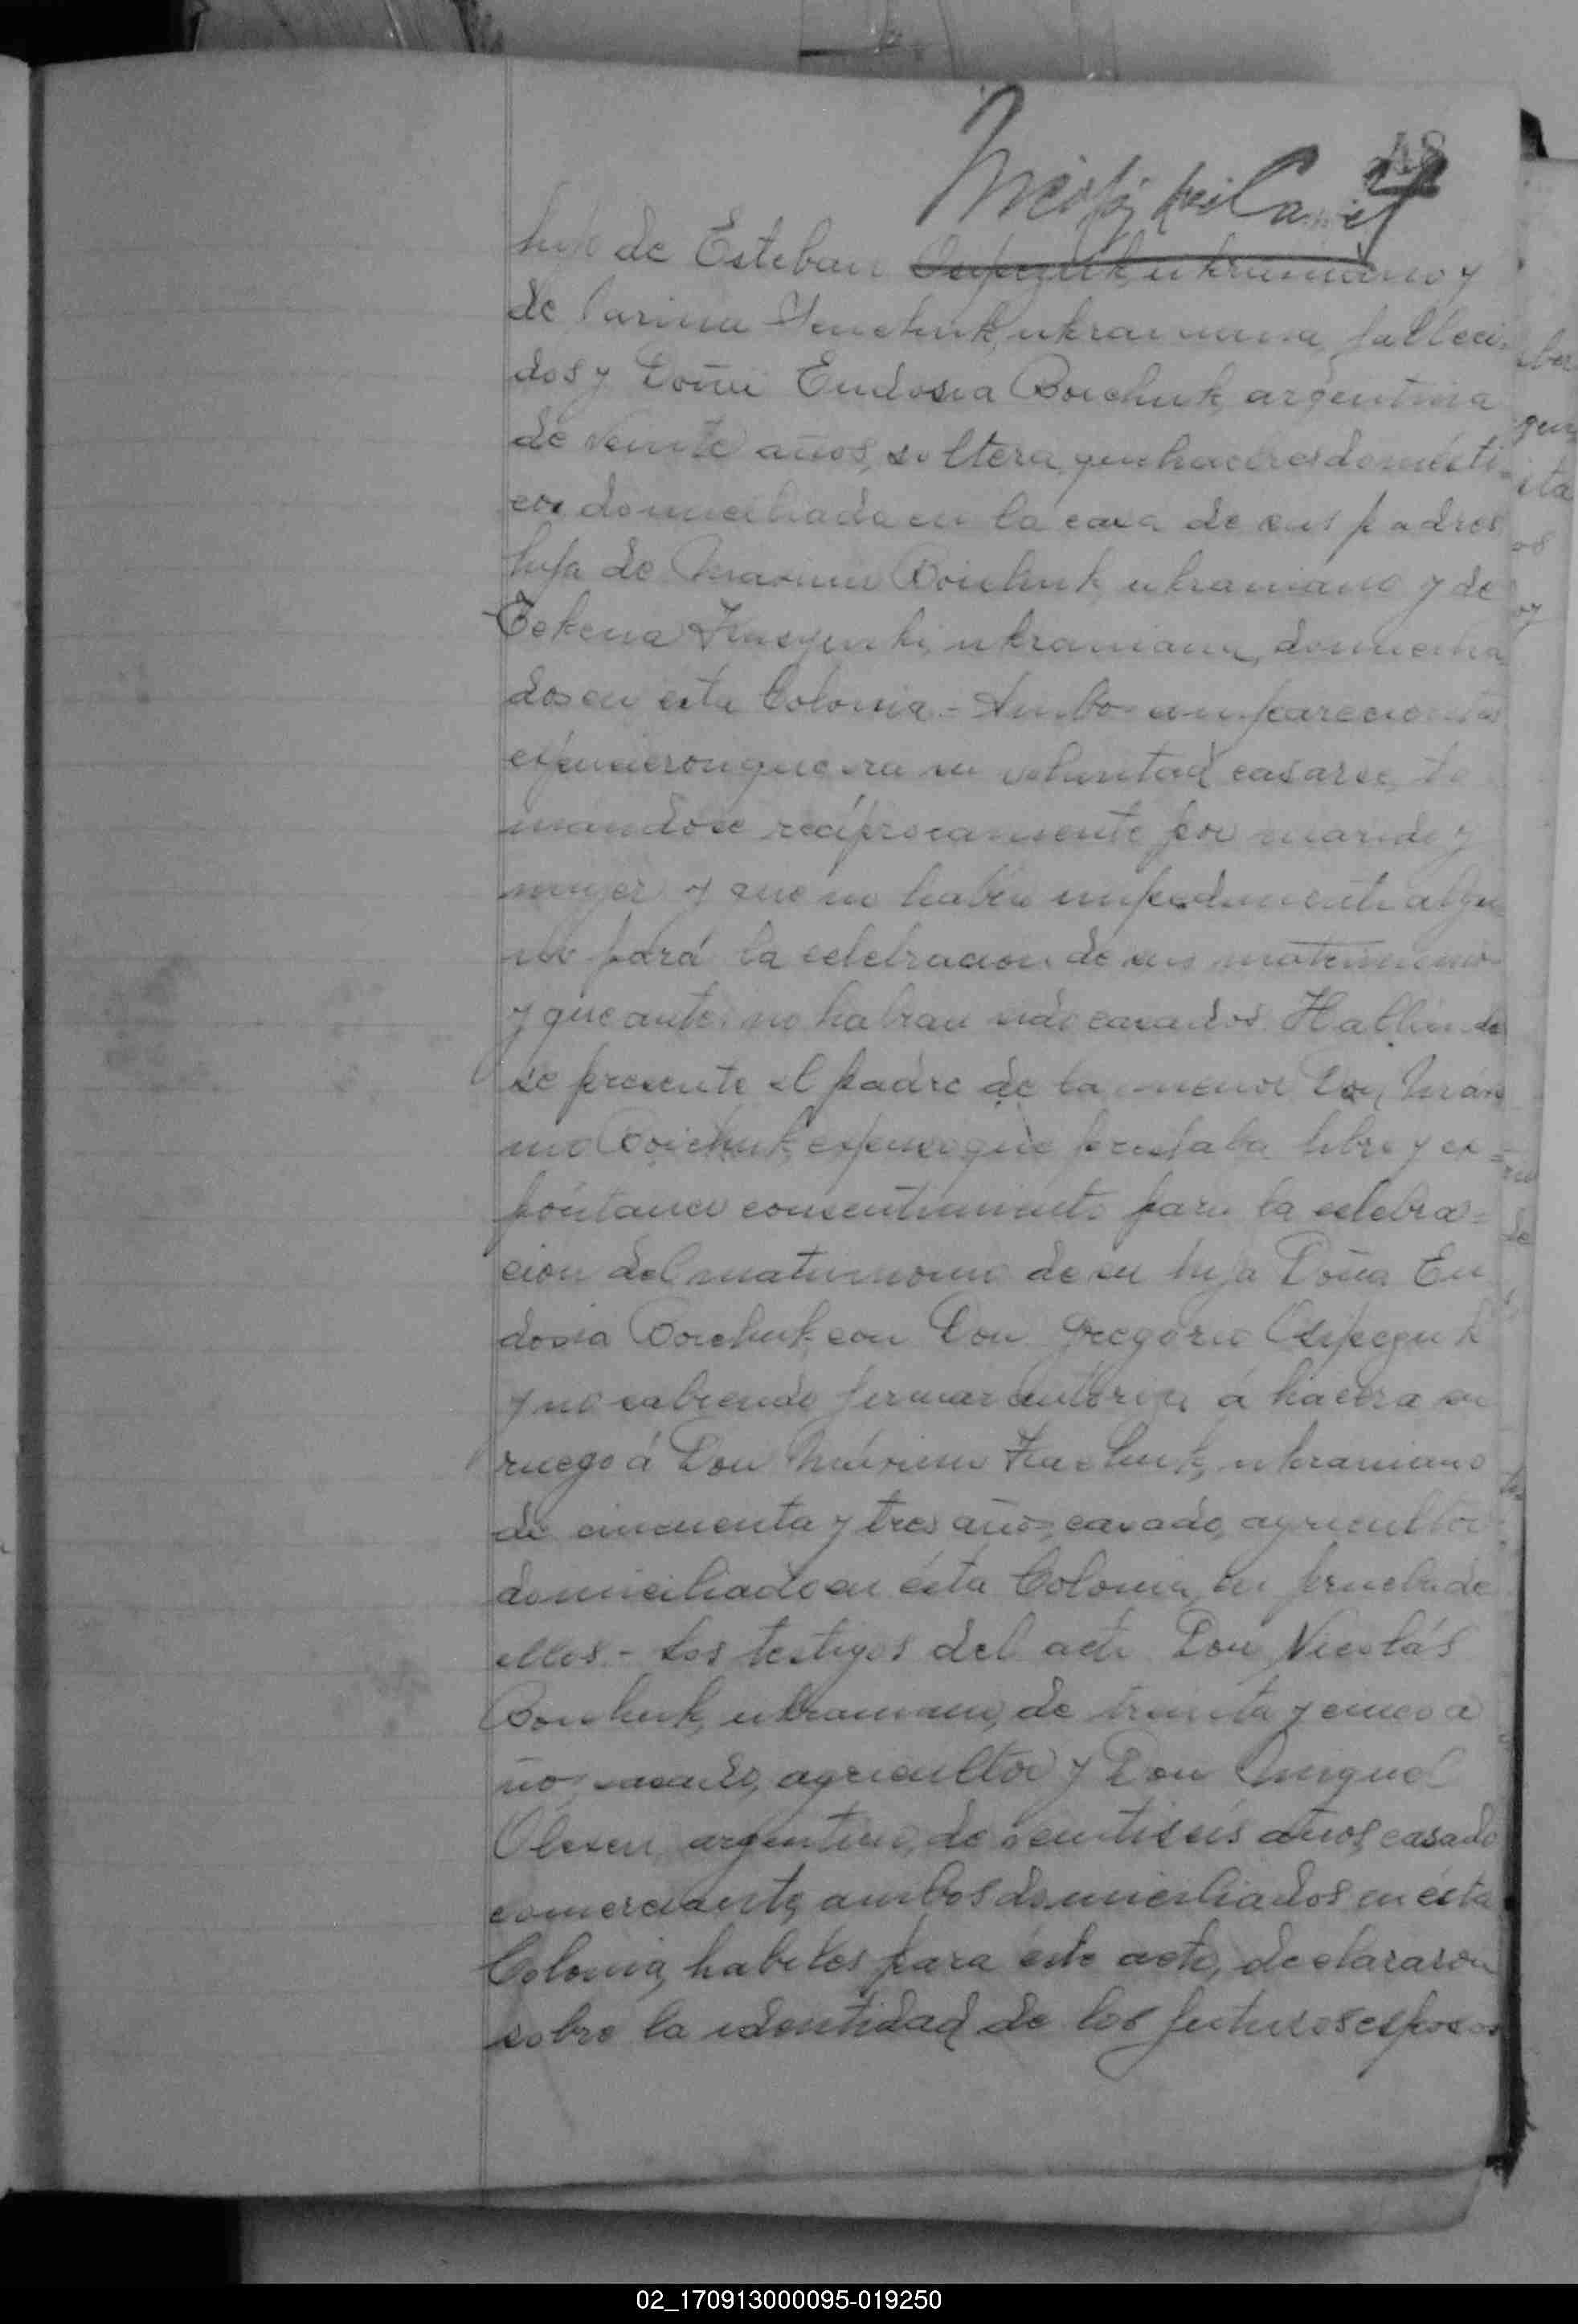 48
hijo de Esteban Osipczuk, ukraniano y
de Carina Senchuk, ukraniana, falleci-
dos y Doña Eudosia Boichuk, argentina
de veinte años, soltera, quehaceres domésti-
cos, domiciliada en la casa de sus padres
hija de Máximo Boichuk, ukraniano y de
ukraniana, domicilia
dos en ésta Colonia.- Ambos comparecientes
expusieron que era su voluntad casarse, to
mandose recíprocamente por marido y
mujer y que no había impedimento algu
no para la celebracion de su matrimonio
y que antes no habian sido casados. Hallándo
se presente el padre de la menor Don Máxi
mo Boichuk, expuso que prestaba libre y es=
pontaneo consentimiento para la celebra=
cion del matrimonio de su hija Doña Eu
dosia Boichuk, con Don Gregorio Osipczuk
y no sabiendo firmar autoriza á hacer a su
ruego á Don Máximo ukraniano
de cincuenta y tres años, casado, agricultor
domiciliado en ésta Colonia, en prueba de
ellos.- Los testigos del acto Don Nicolás
Boichuk, ukraniano, de treinta y cinco a
ños, casado, agricultor y Don Miguel
Olexen, argentino, de veintiseis años, casado
comerciante, ambos domiciliados en ésta
Colonia, habiles para éste acto, declararon
sobre la identidad de los futuros esposos
02_170913000095-019250